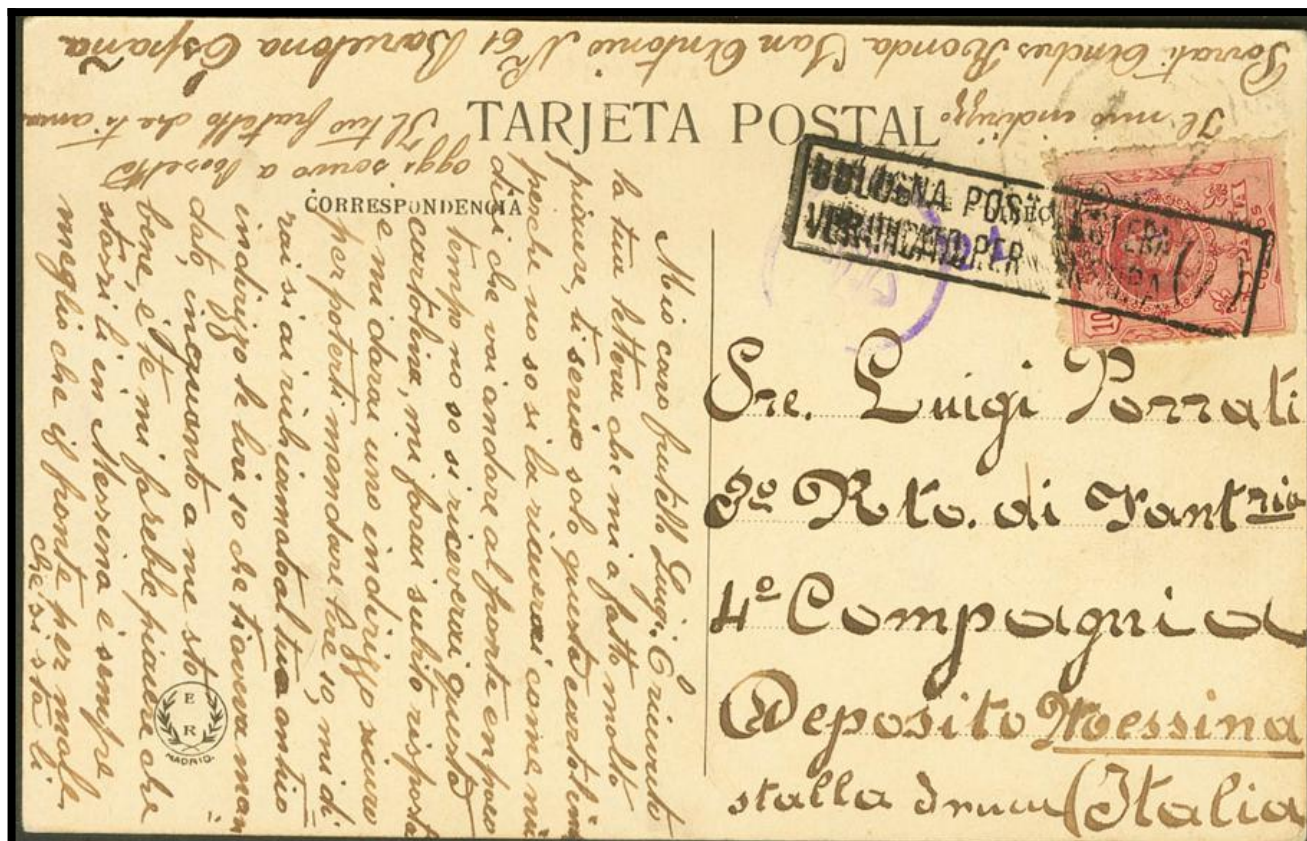 TARJETA POSTAL
CORRESPONDENCIA
BOLOGNA POSTA ESTERA
VERIFICATO PER CENSURA
10
Sre. Luigi Porrati
3º Rto. di Fantria
4ª Compagnia
Deposito Messina
stalla (Italia
Mio caro fratello Luigi. O ricevuto
la tua lettera che mi a fatto molto
piacere, ti scrivo solo questa cartolina
perche no so si la riceverai come mi
dici che vai andare al fronte en poco
tempo no so si riceverai questa
cartolina, mi farai subito risposta
e mi darai uno indirizzo sicuro
per poterti mandare lire 10, mi di
rai si ai richiamato al tuo antico
indirizzo le lire 10 che ti aveva man
dato, in quanto a me sto
bene, e te mi farebbe piacere che
stassi li in Messina è sempre
meglio che il fronte per male
che si sta li
oggi scrivo a
Il tuo fratello che ti ama
Il mio indirizzo
Porrati Andres Ronda San Antonio Nº 61 Barcelona España
E
R
MADRID.